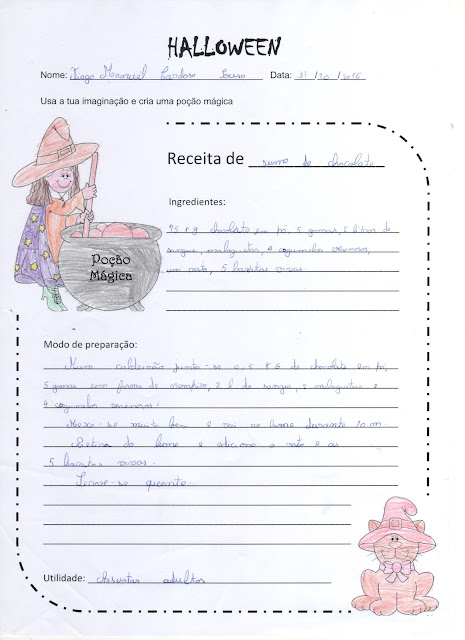 HALLOWEEN
Nome: Tiago Manuel Cardoso Data: 31/10/2016
Usa a tua imaginação e cria uma poção mágica
Receita de sumo de chocolate
Ingredientes:
chocolate em pó, 5 gomas, 2 litros de
sangue, malaguetas, 4 cogumelos venenosos,
um rato, 5 baratas vivas
Poção
Mágica
Modo de preparação:
Num caldeirão junta-se 0,5 KG de chocolate em pó,
5 gomas com forma de vampiro, 2 l de sangue, 2 malaguetas e
4 cogumelos venenosos.
Mexe-se muito bem e vai ao lume durante 10 m.
Retira do lume e adiciona o rato e as
5 baratas vivas.
Serve-se quente.
Utilidade: Assustar adultos